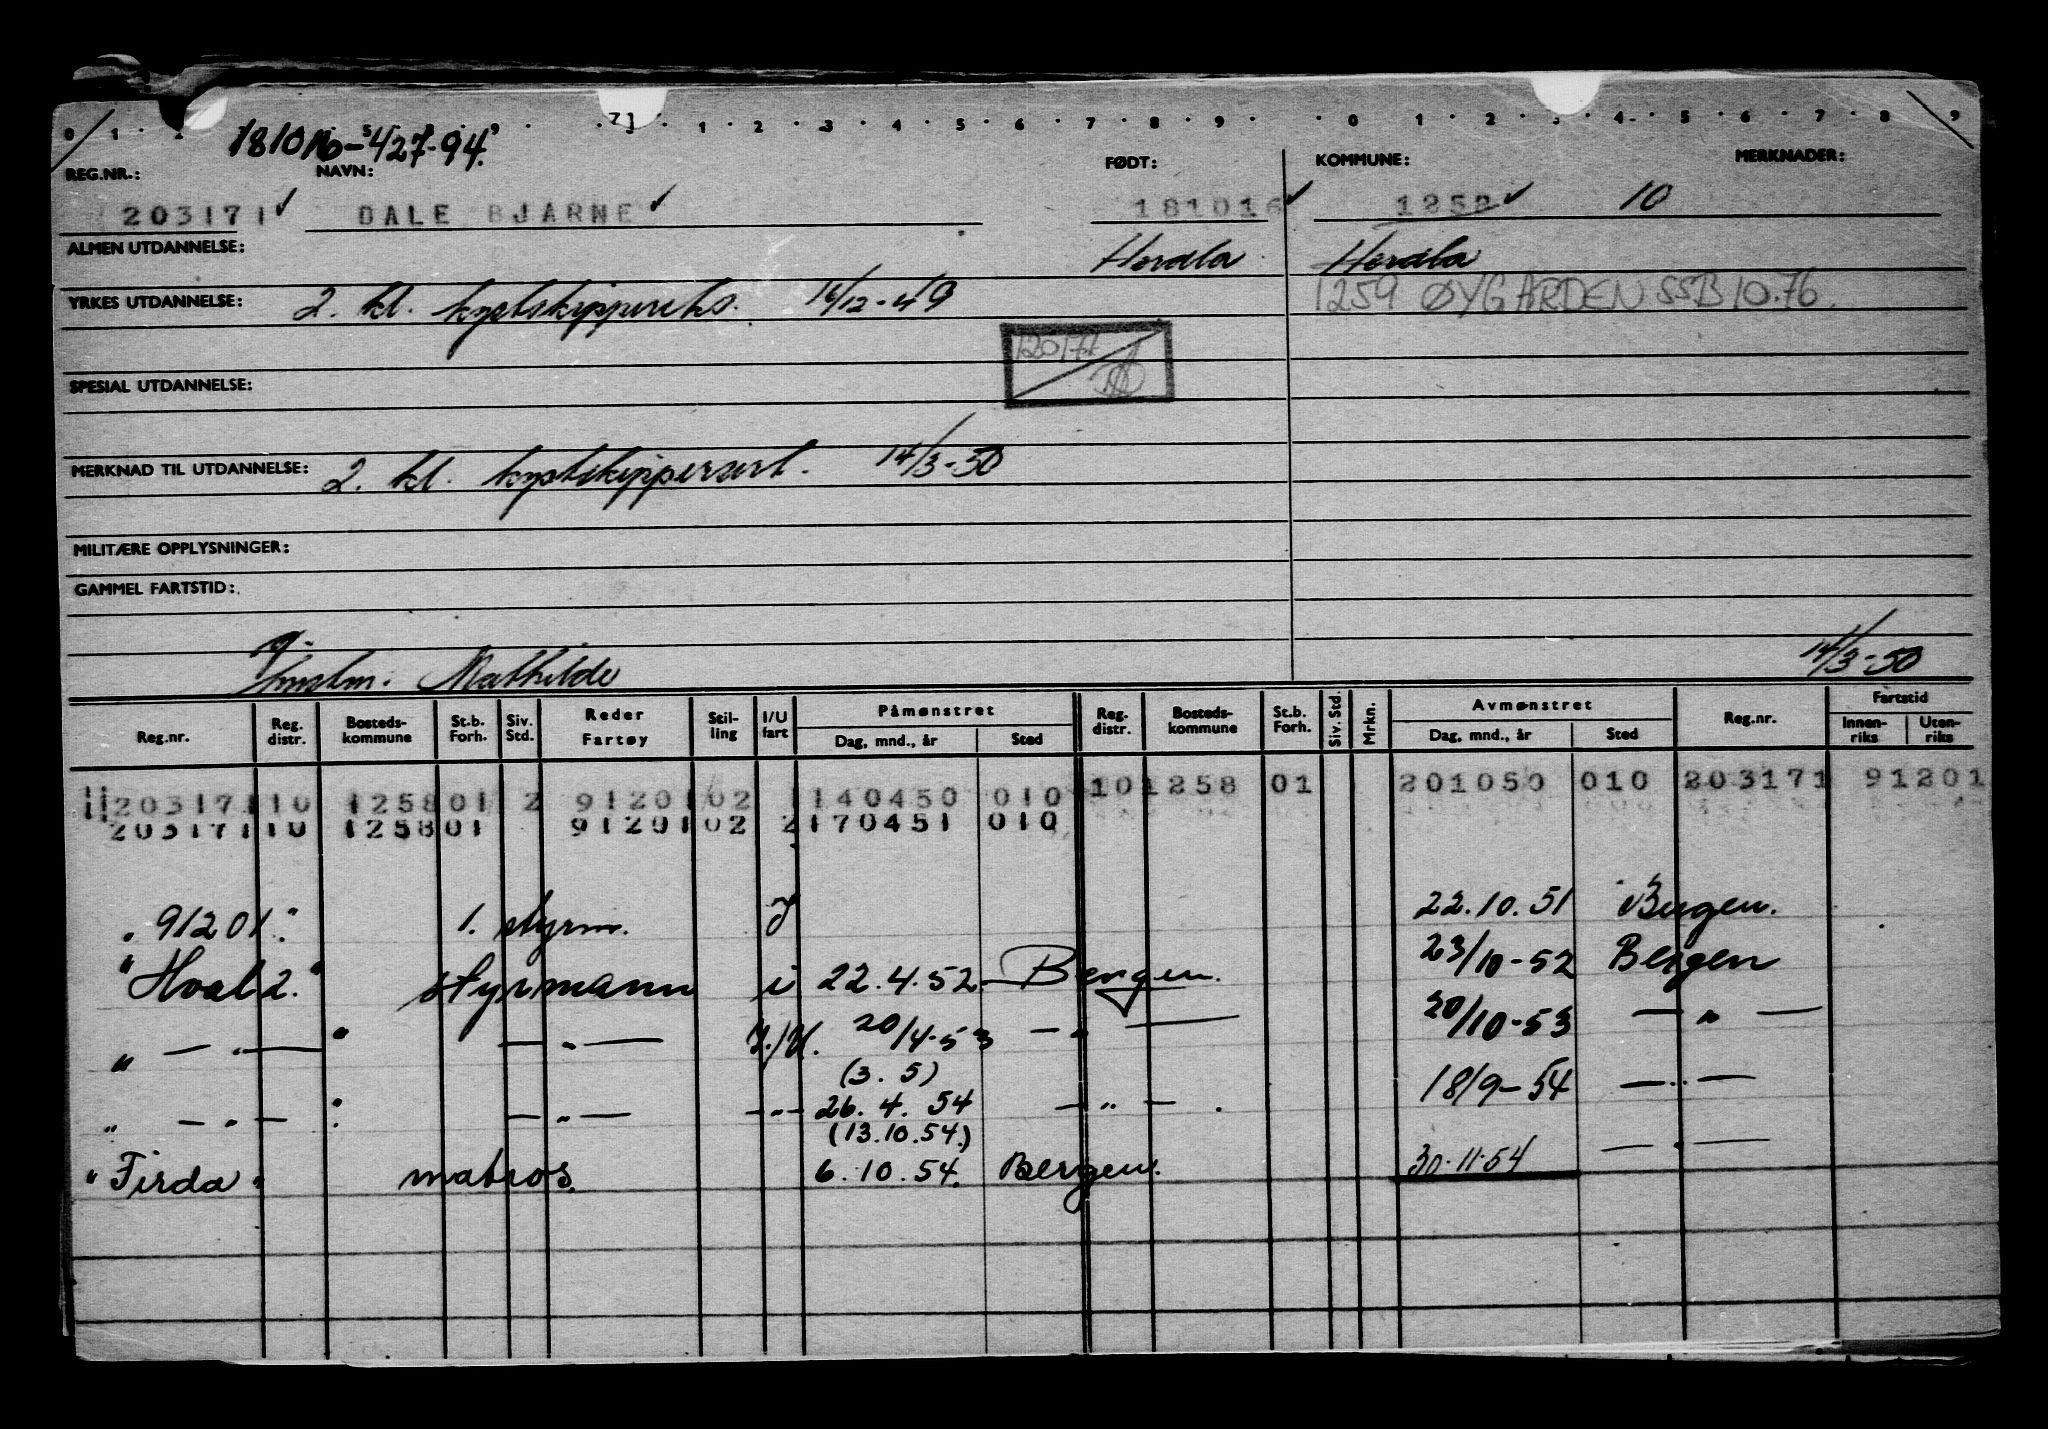 0 1 . 2 . . 71 1 2 3 4 5 6 7 8 9 0 1 2 3 4 5 6 7 8 9
181016-42794.
REG.NR.: NAVN: FØDT: KOMMUNE: MERKNADER:
203171 ✓ DALE BJARNE ✓ 181016 ✓ 1258 ✓ 10
ALMEN UTDANNELSE: Herdla Herdla
YRKES UTDANNELSE: 2. kl. kystskippereks. 16/12-49 1259 ØYGARDEN SSB 10.76.
SPESIAL UTDANNELSE:
MERKNAD TIL UTDANNELSE: 2. kl. kystskippersert. 14/3-50
MILITÆRE OPPLYSNINGER:
GAMMEL FARTSTID:
Mathilde 14/3-50
Reg.nr. Reg. distr. Bosteds-kommune St.b. Forh. Siv. Std. Reder Fartøy Stil-ling I/U fart Påmønstret Dag, mnd., år Sted Reg. distr. Bosteds-kommune St.b. Forh. Siv. Std. Mrkn. Avmønstret Dag, mnd., år Sted Reg.nr. Fartstid Innen-riks Uten-riks
203171 10 1258 01 2 91201 02 1 140450 010 10 1258 01 201050 010 203171 91201
203171 10 1258 01 91201 02 2 170451 010
"91201" 1. styrm. I 22.10.51 Bergen.
"Hval 2." styrmann i 22.4.52 - Bergen. 23/10-52 Bergen
" — " — " — " — I./U. 20/4-53 — " — 20/10-53 — " —
(3.5)
" — " — " — " — — " — 26.4.54 — " — . 18/9-54 — " —
(13.10.54.)
"Firda" matros. 6.10.54. Bergen. 30.11.54 — " —